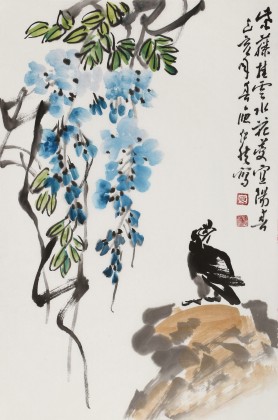 紫藤挂雲木花蔓宜陽春
己亥年春寫